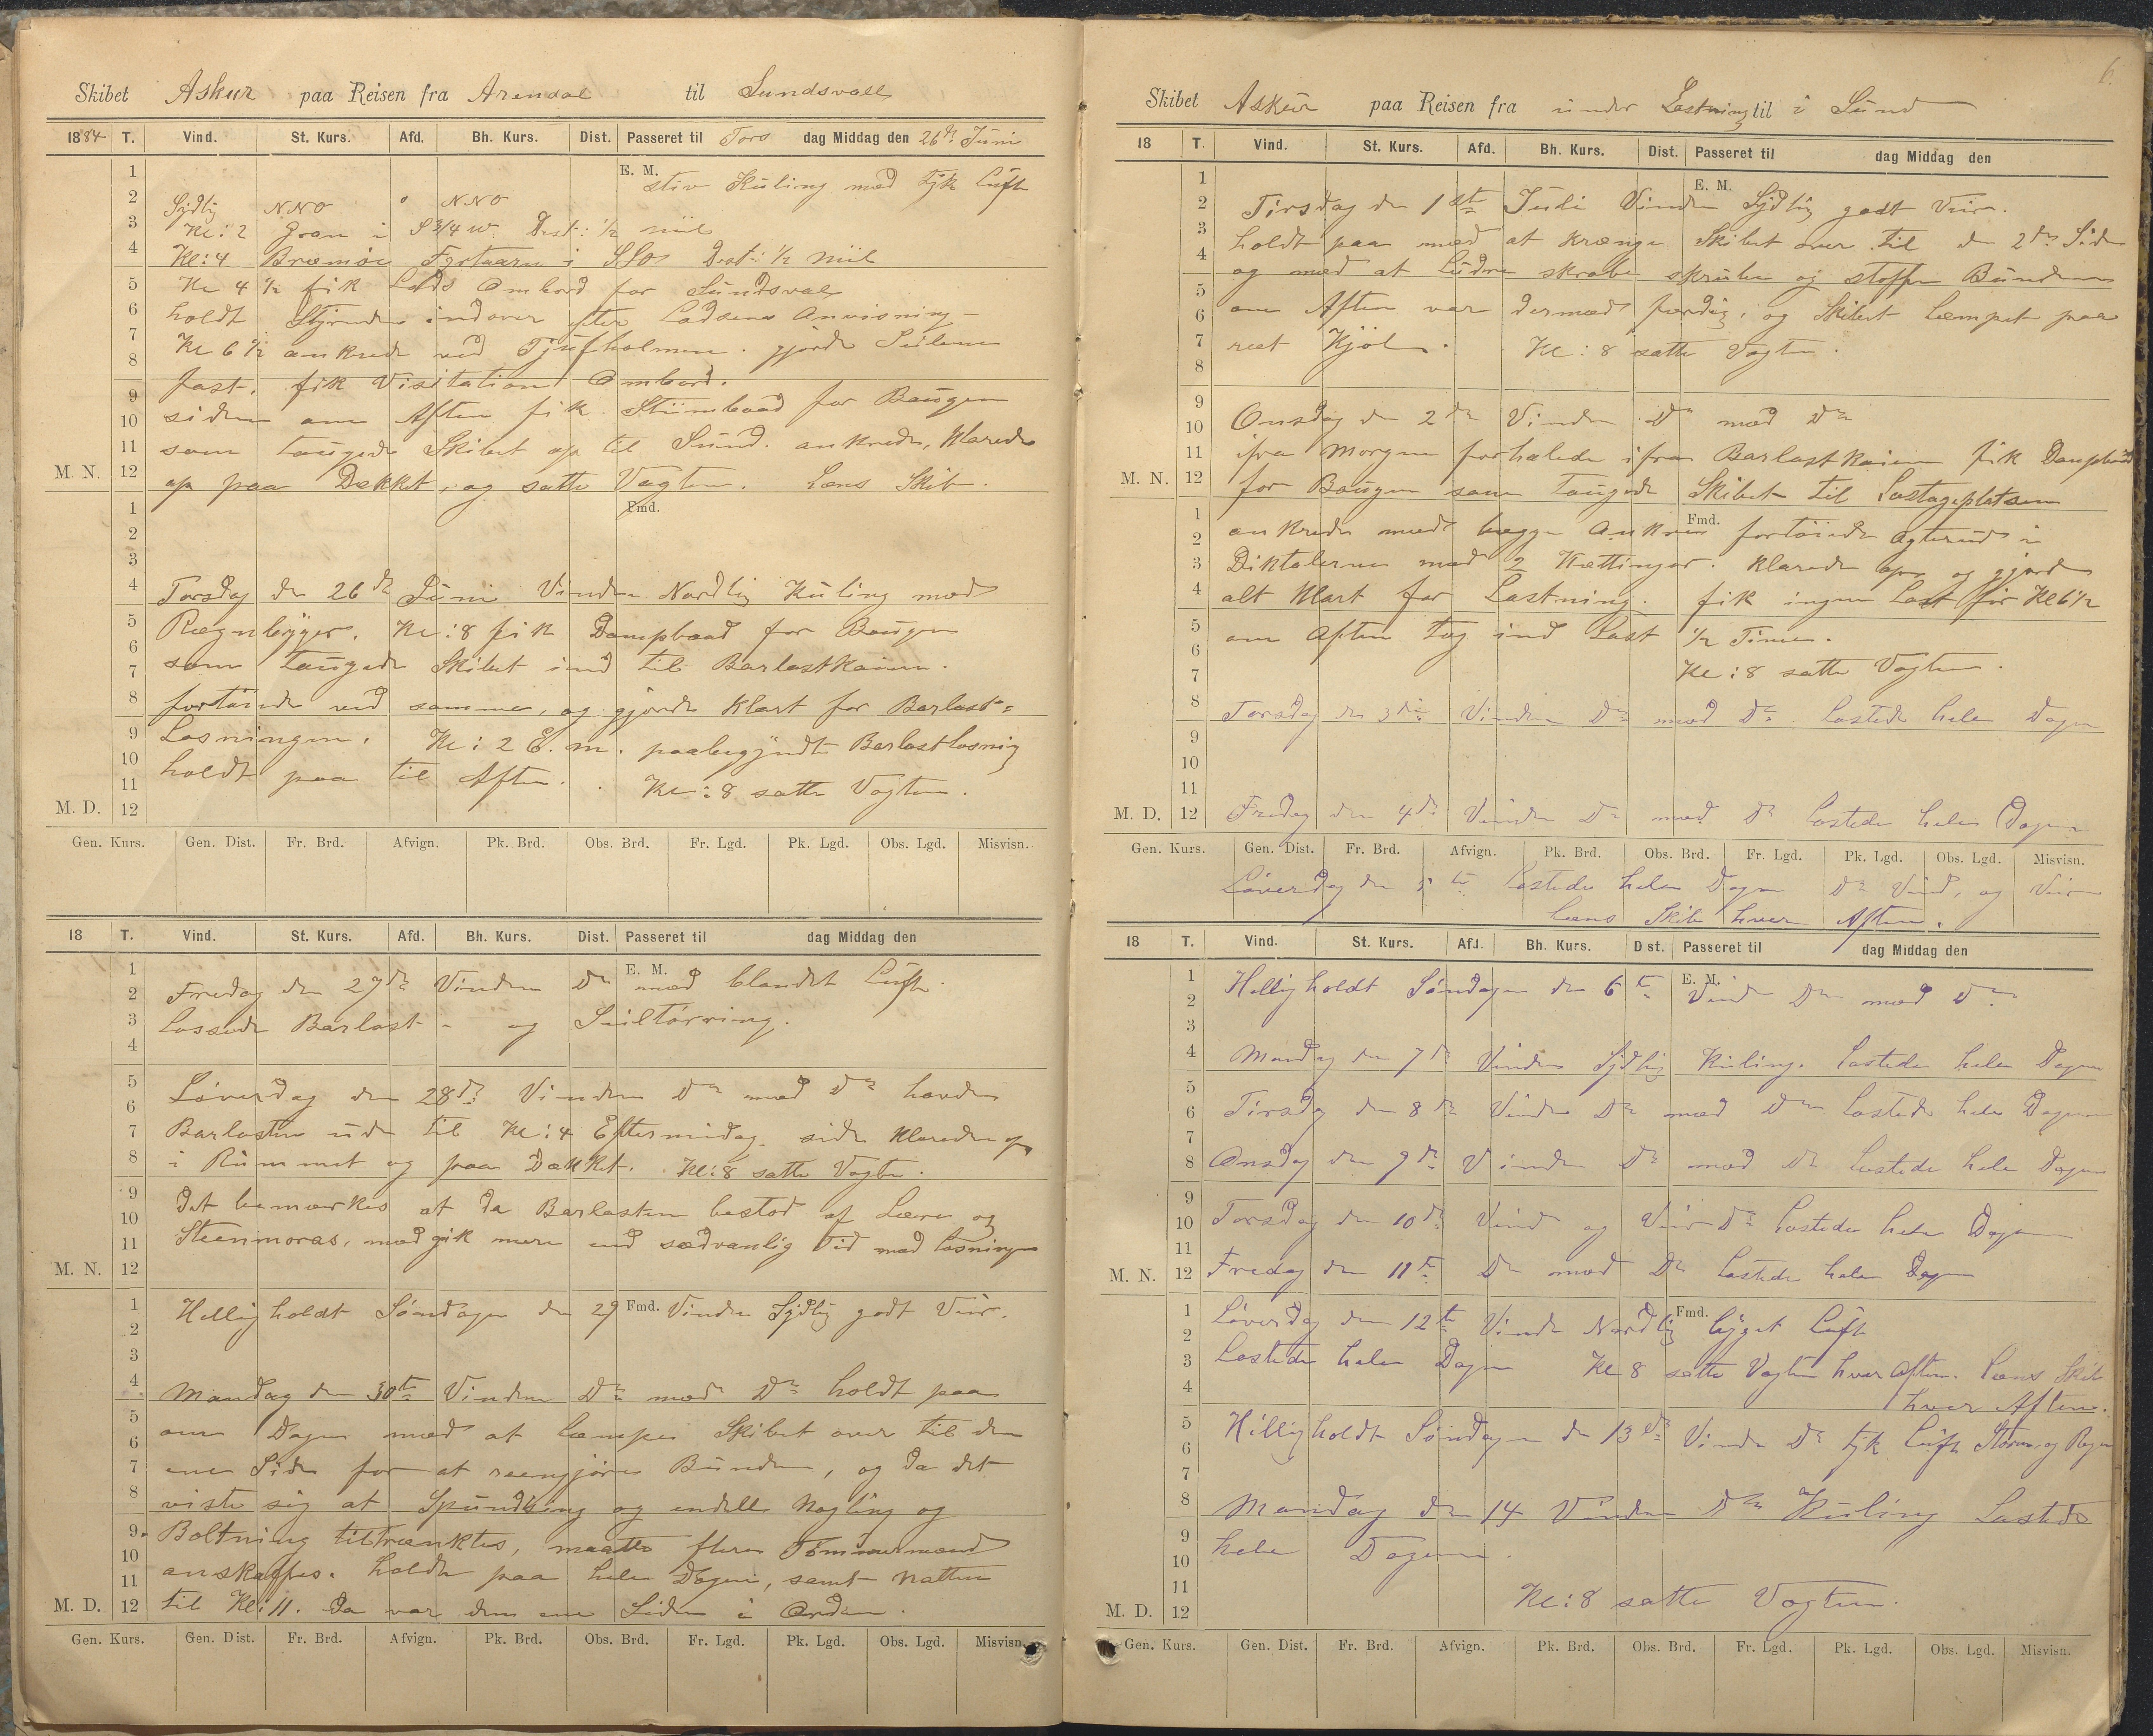 Skibet Askur paa Reisen fra Arendal til Sundsvall
1884 T. Vind. St. Kurs. Afd. Bh. Kurs. Dist. Passeret til Tors dag Middag den 26de Juni
E. M.
stiv Kuling med tyk Luft
Sydlig NNO 0 NNO
Kl: 2 Gran i S 3/4 W Dist: 1/2 miil
Kl: 4 Bræmöe Fyrtaarn i SSO Dist: 1/2 Miil
Kl 4 1/2 fik Lods Ombord for Sundsval
holdt Styrende indover efter Lodsens Anvisning
Kl 6 1/2 ankrede ved Tjufholmen. gjorde Seilene
fast, fik Visitation Ombord.
siden om Aften fik Stiimbaad for Bougen
som tougede Skibet op til Sund. ankrede, Klarede
op paa Dækket, og satte Vagten. Læns Skib.
M. N.
Fmd.
Torsdag den 26de Juni Vinden Nordlig Kuling med
Regnbyger. Kl: 8 fik Dampbaad for Bougen
som tougede Skibet ind til Barlastkaien.
fortöiede ved samme, og gjorde Klart for Barlast=
Losningen. Kl: 2 E. m. paabegyndt Barlastlosning
holdt paa til Aften. Kl: 8 satte Vagten.
M. D.
Gen. Kurs. Gen. Dist. Fr. Brd. Afvign. Pk. Brd. Obs. Brd. Fr. Lgd. Pk. Lgd. Obs. Lgd. Misvisn.
18 T. Vind. St. Kurs. Afd. Bh. Kurs. Dist. Passeret til dag Middag den
E. M.
Fredag den 27de Vinden Do med blandet Luft.
Lossede Barlast - og Seiltörring.
Löverdag den 28de Vinden Do med Do havde
Barlasten ude til Kl: 4 Eftermidag. side Klarede op
i Rummet og paa Dækket. Kl: 8 satte Vagten.
Det bemærkes at da Barlasten bestod af Leere og
Steenmoras, medgik mere end sædvanlig Tid med Losningen
M. N.
Fmd.
Helligholdt Söndagen den 29 Vinden Sydlig godt Veir.
Mandag den 30te Vinden Do med Do holdt paa
om Dagen med at læmpe Skibet over til den
ene Side for at reengjöre Bunden, og da det
viste sig at Spundsing og endell Nagling og
Boltning tiltrænktes, maatte flere Tömmermænd
anskaffes. holdt paa hele Dagen, samt Natten
til Kl: 11. Da var den ene Siden i Orden.
M. D.
Gen. Kurs. Gen. Dist. Fr. Brd. Afvign. Pk. Brd. Obs. Brd. Fr. Lgd. Pk. Lgd. Obs. Lgd. Misvisn.
6.
Skibet Askur paa Reisen fra under Lastning til i Sund
18 T. Vind. St. Kurs. Afd. Bh. Kurs. Dist. Passeret til dag Middag den
E. M.
Tirsdag den 1ste Juli Vinden Sydlig godt Veir.
holdt paa med at krænge Skibet over til den 2den Side
og med at ludre skrabe skrubbe og stoppe Bunden
om Aften var dermed færdig, og Skibet læmpet paa
ret Kjöl. Kl: 8 satte Vagten.
Onsdag den 2den Vinden Do med Do
ifra Morgen forhalede ifra Barlastkaien fik Dampbaad
for Bougen som tougede Skibet til Lastageplatsen
M. N.
Fmd.
ankrede med begge Ankere fortöiede agterud i
Diktalerne med 2 Kættinger. Klarede op og gjorde
alt Klart for Lastning. fik ingen Last för Kl 6 1/2
om Aften tog ind Last 1/2 Time.
Kl: 8 satte Vagten.
Torsdag den 3die Vinden Do med Do Lastede hele Dagen
M. D.
Fredag den 4de Vinden Do med Do Lastede hele Dagen
Gen. Kurs. Gen. Dist. Fr. Brd. Afvign. Pk. Brd. Obs. Brd. Fr. Lgd. Pk. Lgd. Obs. Lgd. Misvisn.
Löverdag den 5te Lastede hele Dagen Do Vind, og Veir
læns Skib hver Aften.
18 T. Vind. St. Kurs. Afd. Bh. Kurs. Dist. Passeret til dag Middag den
E. M.
Helligholdt Söndagen den 6te Vind Do med Do.
Mandag den 7de Vinden Sydlig Kuling. Lastede hele Dagen
Tirsdag den 8de Vinden Do med Do Lastede hele Dagen
Onsdag den 9de Vinden Do med Do Lastede hele Dagen
Torsdag den 10de Vind og Veir Do Lastede hele Dagen
M. N.
Fredag den 11te Do med Do Lastede hele Dagen
Fmd.
Löverdag den 12te Vinde Nordlig byget Luft
Lastede hele Dagen Kl 8 satte Vagten hver Aften. Læns Skib
hver Aften.
Helligholdt Söndagen de 13de Vinde Do tyk Luft Storm og Regn
Mandag den 14 Vinden Do Kuling Lastede
hele Dagen.
Kl: 8 satte Vagten.
M. D.
Gen. Kurs. Gen. Dist. Fr. Brd. Afvign. Pk. Brd. Obs. Brd. Fr. Lgd. Pk. Lgd. Obs. Lgd. Misvisn.